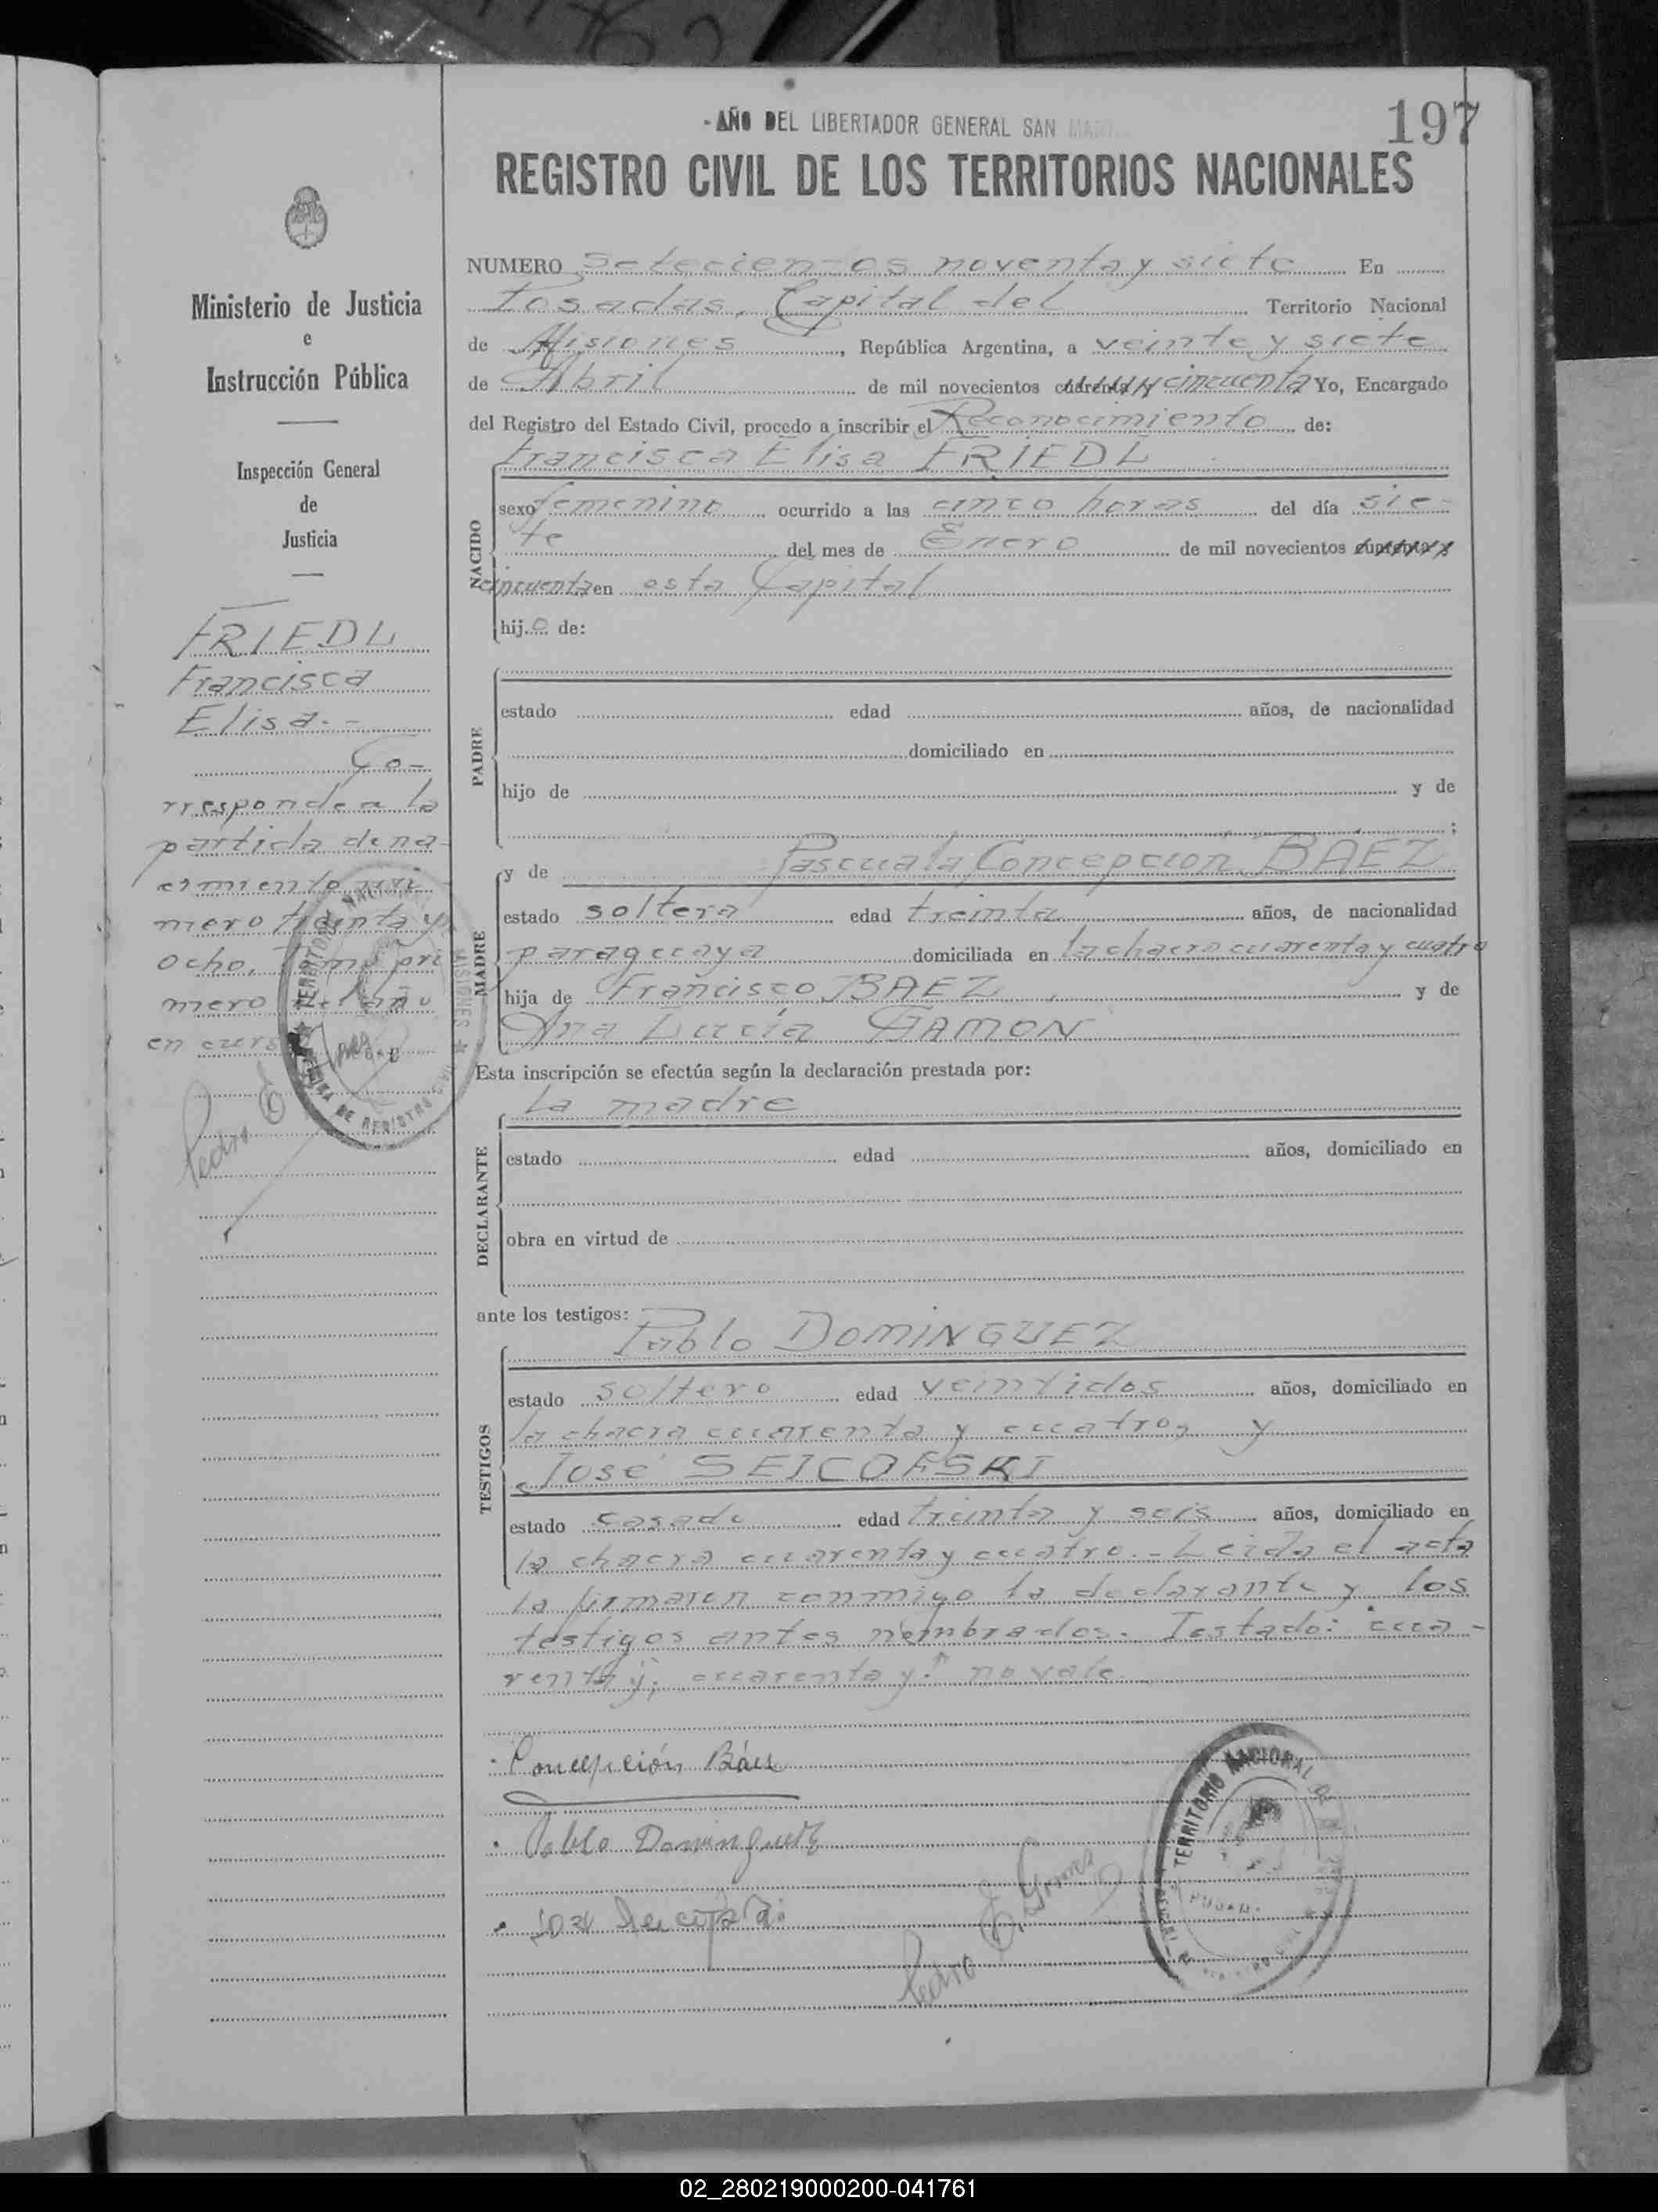 - AÑO DEL LIBERTADOR GENERAL SAN
197
REGISTRO CIVIL DE LOS TERRITORIOS NACIONALES
Ministerio de Justicia
e
Instrucción Pública
Inspección General
de
Justicia
FRIEDL
Francisca
Elisa.-
Co-
rresponde a la
partida de na-
cimiento nú
mero treinta y
ocho, Tomo pri
mero del año
en curso
Pedro E
NUMERO Setecientos noventa y siete En
Posadas, Capital del Territorio Nacional
de Misiones, República Argentina, a veinte y siete
de Abril de mil novecientos cuarenta y cincuenta Yo, Encargado
del Registro del Estado Civil, procedo a inscribir el Reconocimiento de:
Francisca Elisa FRIEDL
NACIDO
sexo femenino ocurrido a las cinco horas del día sie-
te del mes de Enero de mil novecientos cuarenta y
cincuenta en esta Capital
hij o de:
PADRE
estado edad años, de nacionalidad
domiciliado en
hijo de y de
;
y de Pascuala Concepción BÁEZ
MADRE
estado soltera edad treinta años, de nacionalidad
paraguaya domiciliada en la chacra cuarenta y cuatro
hija de Francisco BAEZ y de
Ana Lucía GAMON
Esta inscripción se efectúa según la declaración prestada por:
La madre
DECLARANTE
estado edad años, domiciliado en
obra en virtud de
ante los testigos:
Pablo DOMINGUEZ
TESTIGOS
estado soltero edad veintidos años, domiciliado en
la chacra cuarenta y cuatro, y
José SEICOFSKI
estado casado edad treinta y seis años, domiciliado en
la chacra cuarenta y cuatro.- Leida el acta
la firmaron conmigo la declarante y los
testigos antes nombrados. Testado: "cua-
renta y; cuarenta y:" no vale.
Concepción Báez
Pablo Dominguez
Pedro E. Gomez
TERRITORIO NACIONAL DE
02_280219000200-041761